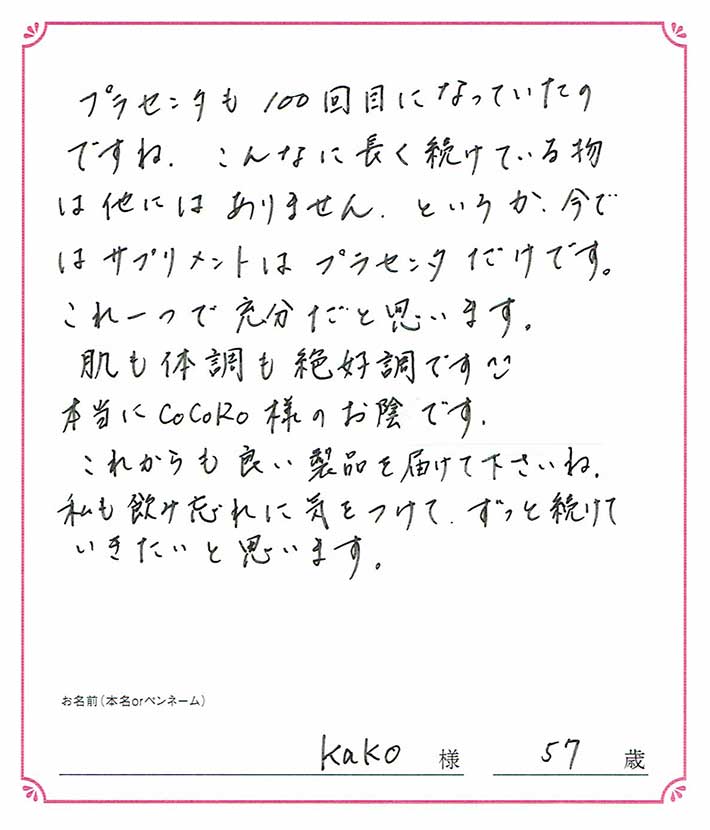 プラセンタも100回目になっていたの
ですね. こんなに長く続けている物
は他にはありません. というか、今で
はサプリメントはプラセンタだけです。
これ一つで充分だと思います。
肌も体調も絶好調です
本当にCoCoRo様のお陰です.
これからも良い製品を届けて下さいね.
私も飲み忘れに気をつけて、ずっと続けて
いきたいと思います。
お名前(本名orペンネーム)
Kako 様 57 歳